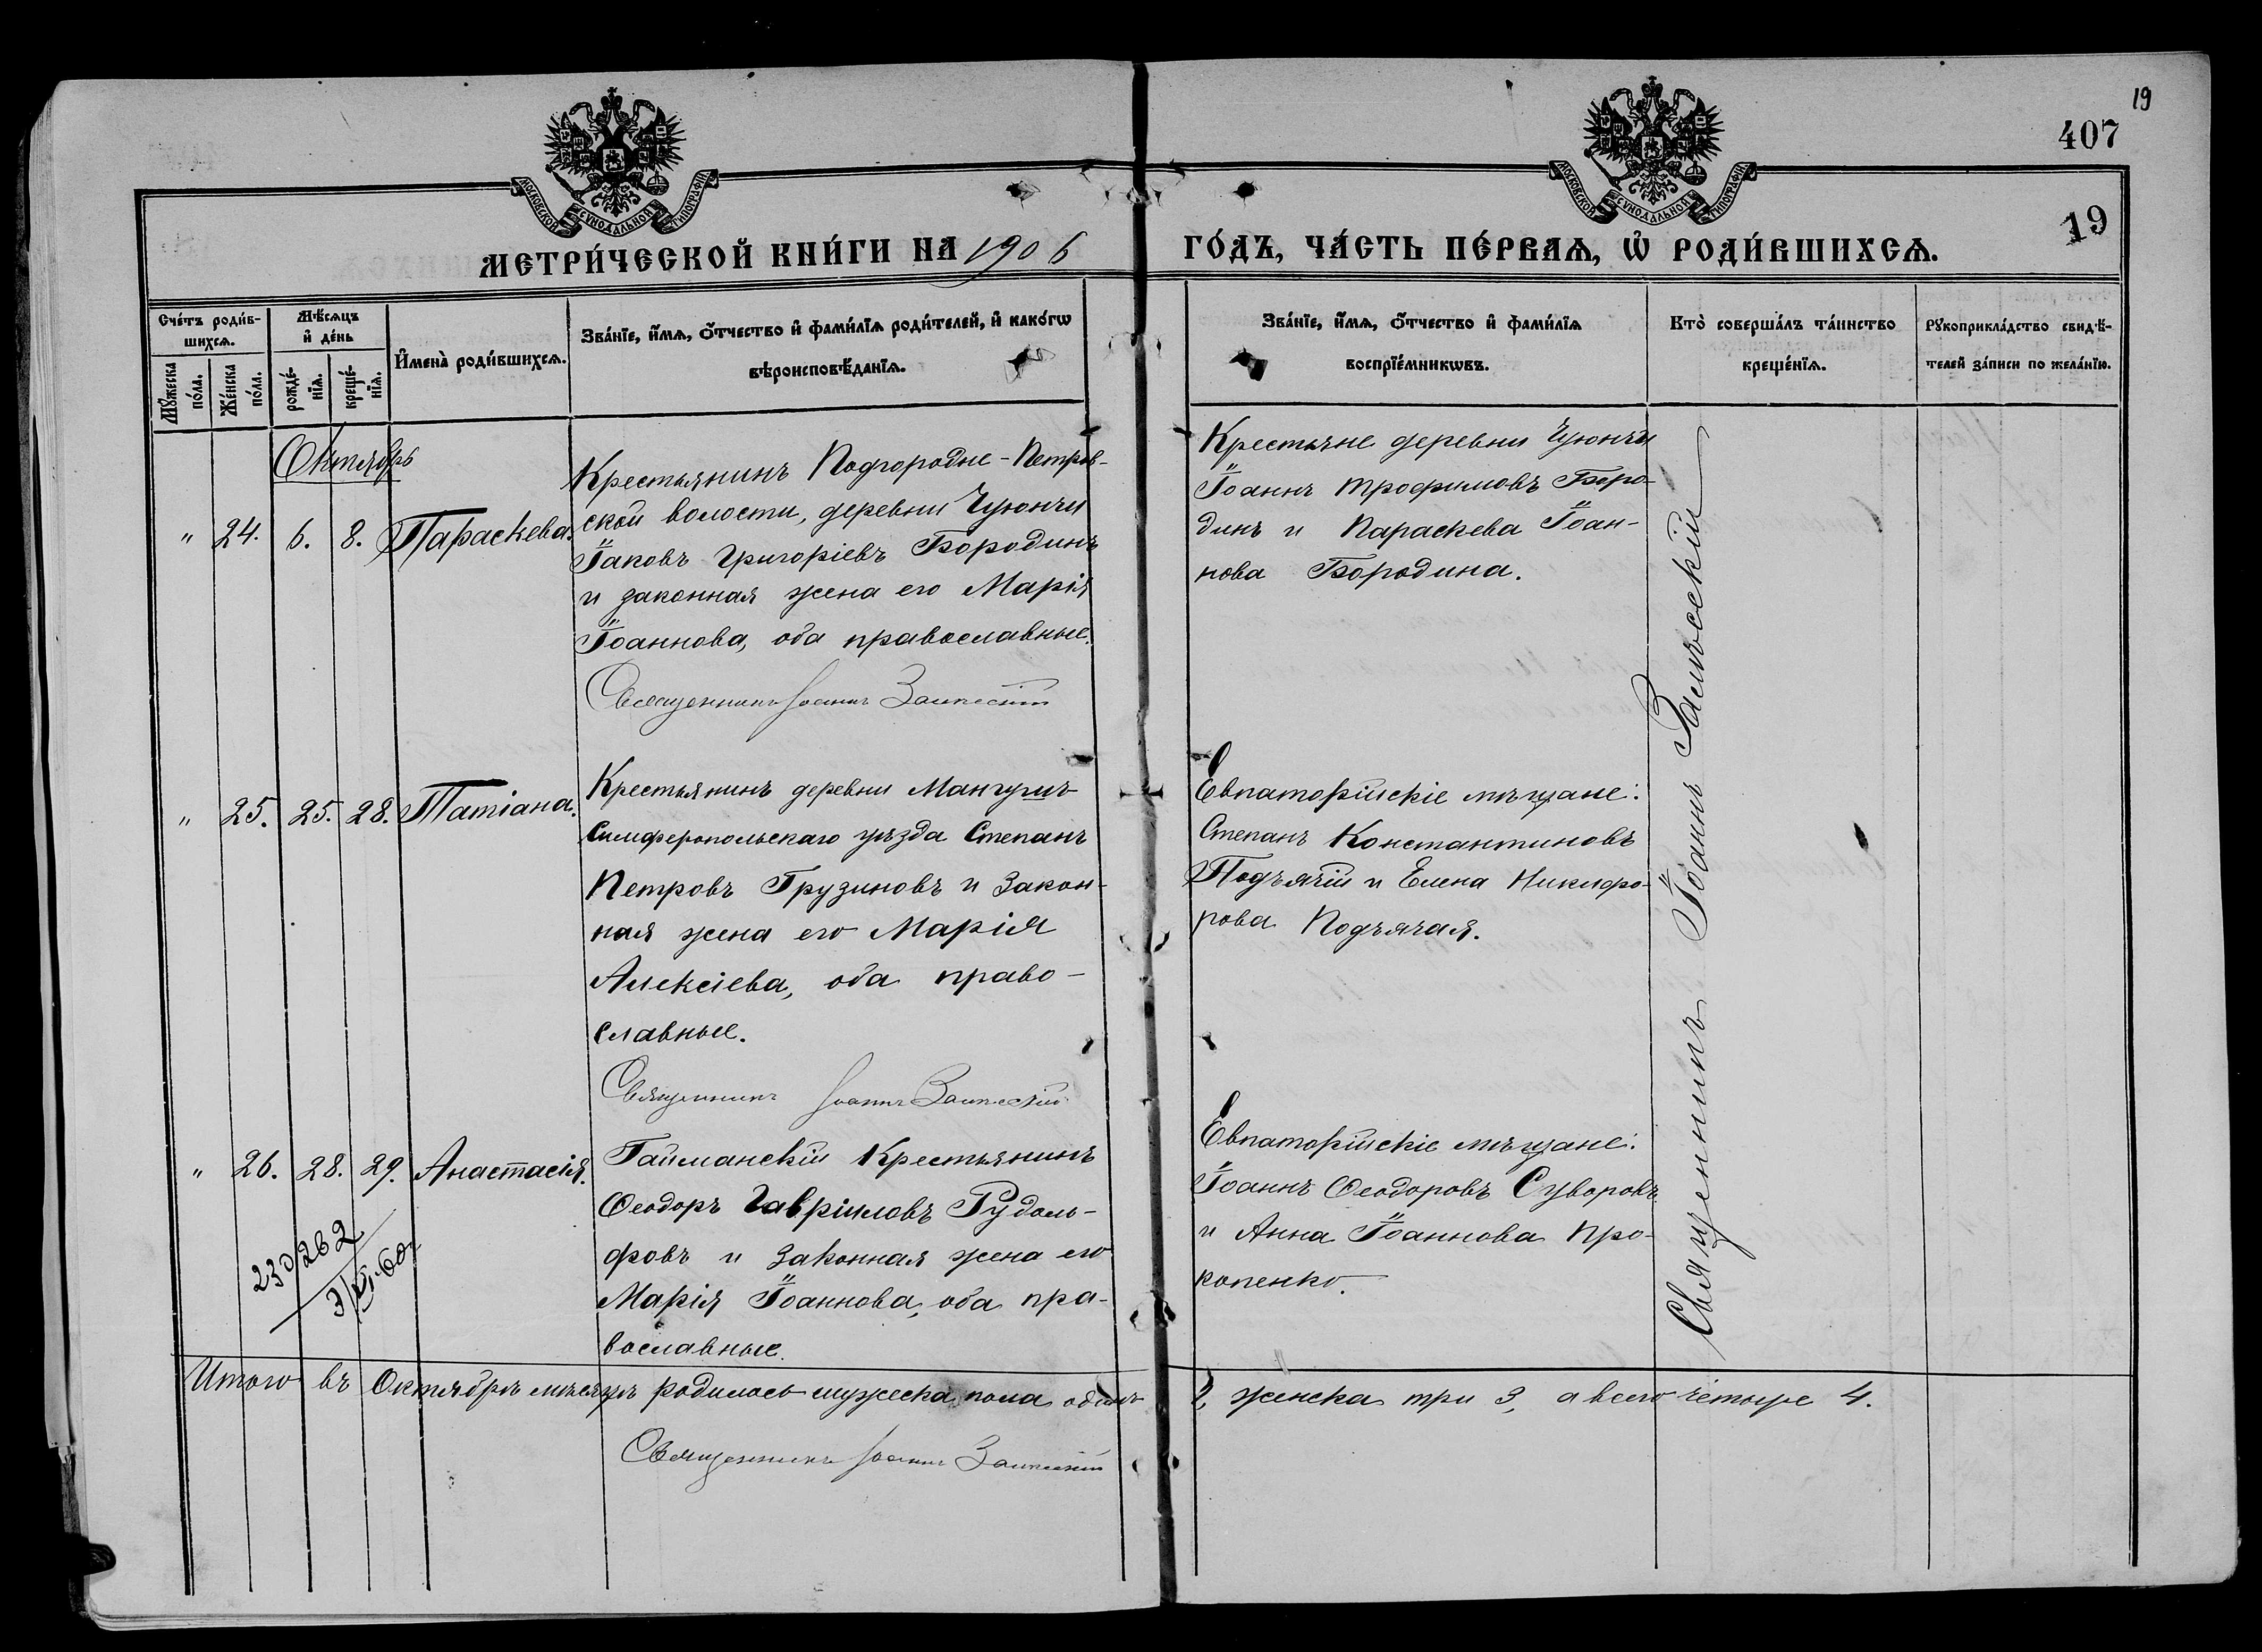 19
407
19
МОСКОВСКОЙ СѴНОДАЛЬНОЙ ТИПОГРАФІИ
МОСКОВСКОЙ СѴНОДАЛЬНОЙ ТИПОГРАФІИ
МЕТРИ́ЧЕСКОЙ КНИ́ГИ НА 1906
ГО́ДЪ, ЧА́СТЬ ПЕ́РВАѦ, Ѡ҆ РОДИ́ВШИХСѦ.
Сче́тъ роди́в-
шихсѧ.
Мꙋ́жеска
по́ла.
Же́нска
по́ла.
Мѣ́сѧцъ
и҆ де́нь
рожде́-
нїѧ.
креще́-
нїѧ.
И҆мена̀ роди́вшихсѧ.
Зва́нїе, и҆́мѧ, ѻ҆́тчество и҆ фами́лїѧ роди́телей, и҆ како́гѡ
вѣроисповѣ́данїѧ.
Зва́нїе, и҆́мѧ, ѻ҆́тчество и҆ фами́лїѧ
воспрїе́мникѡвъ.
Кто̀ соверша́лъ та́инство
креще́нїѧ.
Рꙋкоприкла́дство свидѣ́-
телей за́писи по жела́нїю.
Октябрь
" 24. 6. 8. Параскева.
Крестьянинъ Подгородне-Петров-
ской волости, деревни Чуюнчи
Іаковъ Григоріевъ Бородинъ
и законная жена его Марія
Іоаннова, оба православные.
Священникъ Іоаннъ Замѣсскій
Крестьяне деревни Чуюнчи
Іоаннъ Трофимовъ Боро-
динъ и Параскева Іоан-
нова Бородина.
" 25. 25. 28. Татіана.
Крестьянинъ деревни Мангушъ
Симферопольскаго уѣзда Степанъ
Петровъ Грузиновъ и закон-
ная жена его Марія
Алексіева, оба право-
славные.
Священникъ Іоаннъ
Евпаторійскіе мѣщане:
Степанъ Константиновъ
Подъячій и Елена Никифо-
рова Подъячая.
" 26. 28. 29. Анастасія.
Гайманскій Крестьянинъ
Ѳеодоръ Гавріиловъ Рудоль-
фовъ и законная жена его
Марія Іоаннова, оба пра-
вославные.
Евпаторійскіе мѣщане:
Іоаннъ Ѳеодоровъ Суворовъ
и Анна Іоаннова Про-
копенко.
Священникъ Іоаннъ
Итого въ Октябрѣ мѣсяцѣ родилось мужеска пола одинъ 1, женска три 3, а всего четыре 4.
Священникъ Іоаннъ